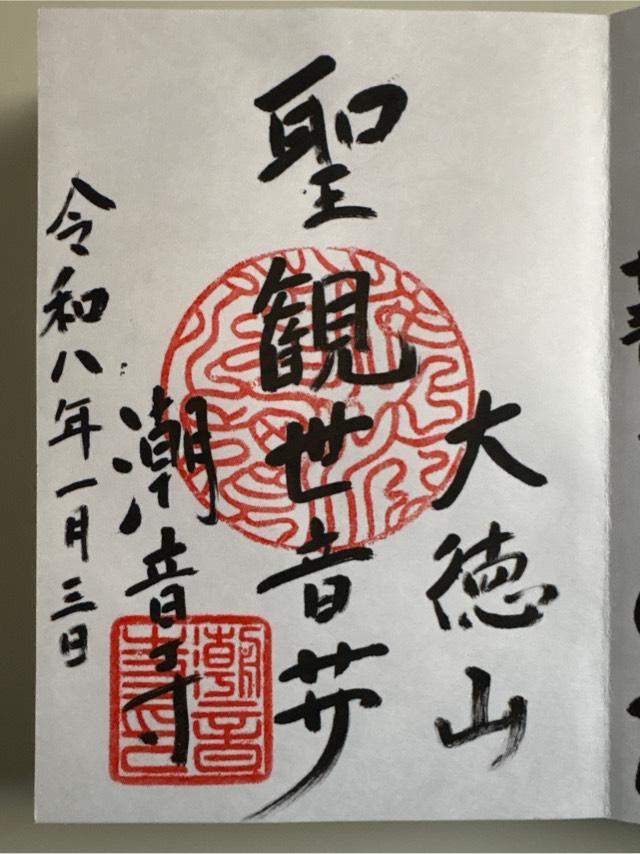 大徳山
聖観世音菩
潮音寺
令和八年一月三日
潮音寺印